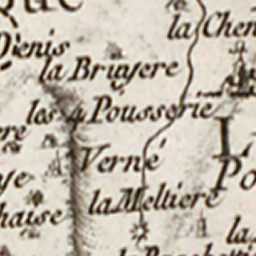 la Chen
Dienis
la Bruyere
les 4 Pousserie
ere
Verné
Po
ye
la Meltiere
haise
la